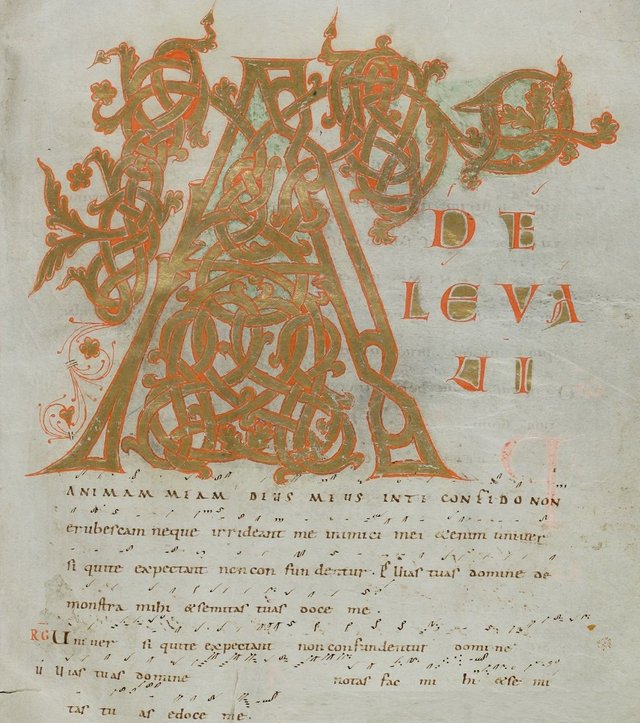 A D TE
LEVA
VI
ANIMAM MEAM DEUS MEUS INTE CONFIDO NON
erubescam neque irrideant me inimici mei &enim univer
si qui te expectant non con fun dentur. Ps Uias tuas domine de
monstra mihi &semitas tuas doce me.
RG Univer si qui te expectant non confundentur domine
Uias tuas domine notas fac mi hi &se mi
tas tu as edoce me.